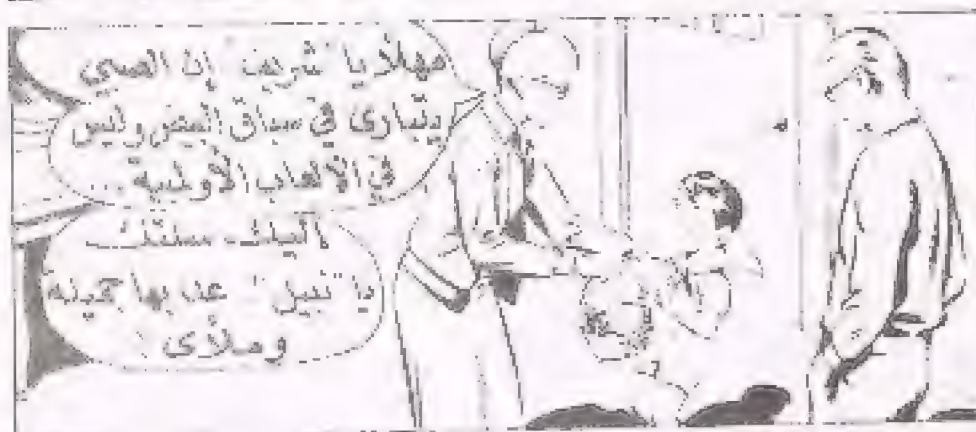 مهلاً يا "شريف" إن الصبي
يتبارى في سباق البيض وليس
في الألعاب الأولمبية ..
إليك سلتك
يا "نبيل" عد بها
وملأى !